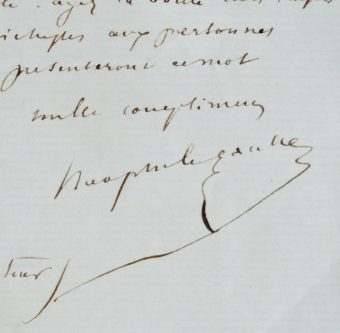 ayez la bonté
aux personnes
présenteront ce mot
mille complimens
theophile gautier